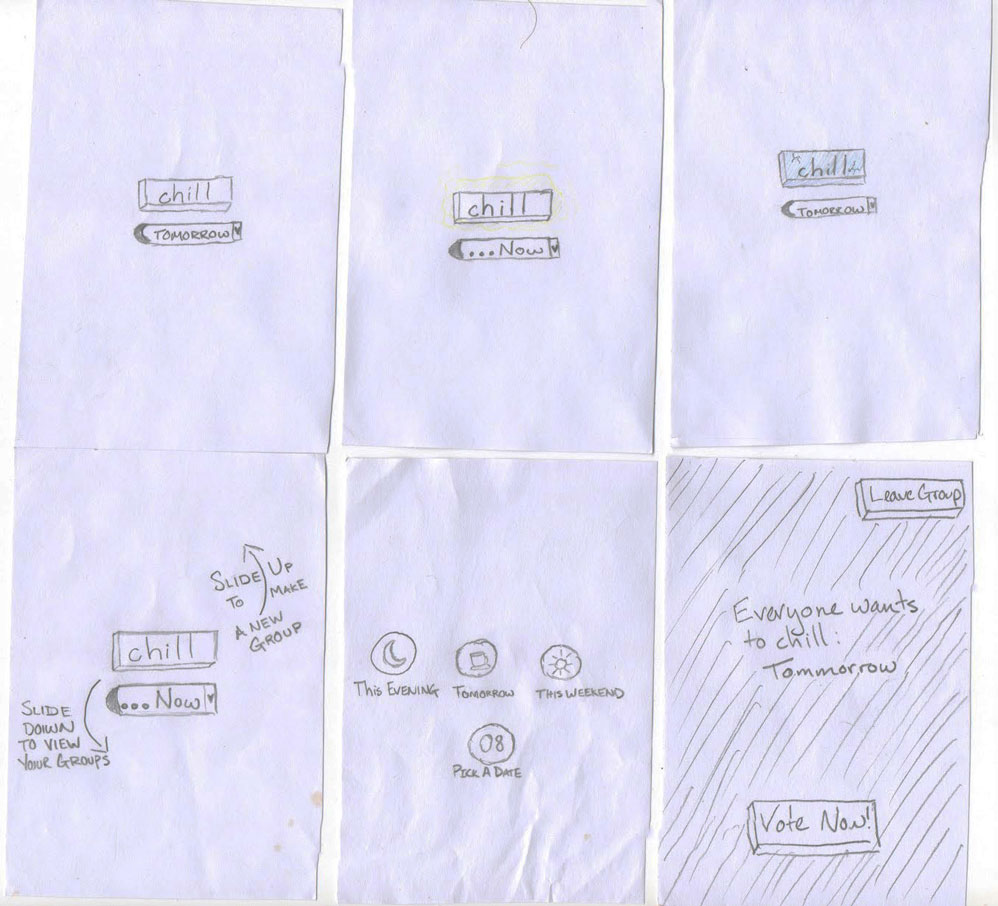 chill
TOMORROW
chill
...NOW
chill
TOMORROW
SLIDE UP
TO MAKE
A NEW
GROUP
chill
...NOW
SLIDE
DOWN
TO VIEW
YOUR GROUPS
THIS EVENING
TOMORROW
THIS WEEKEND
08
PICK A DATE
Leave Group
Everyone wants
to chill:
Tommorrow
Vote Now!